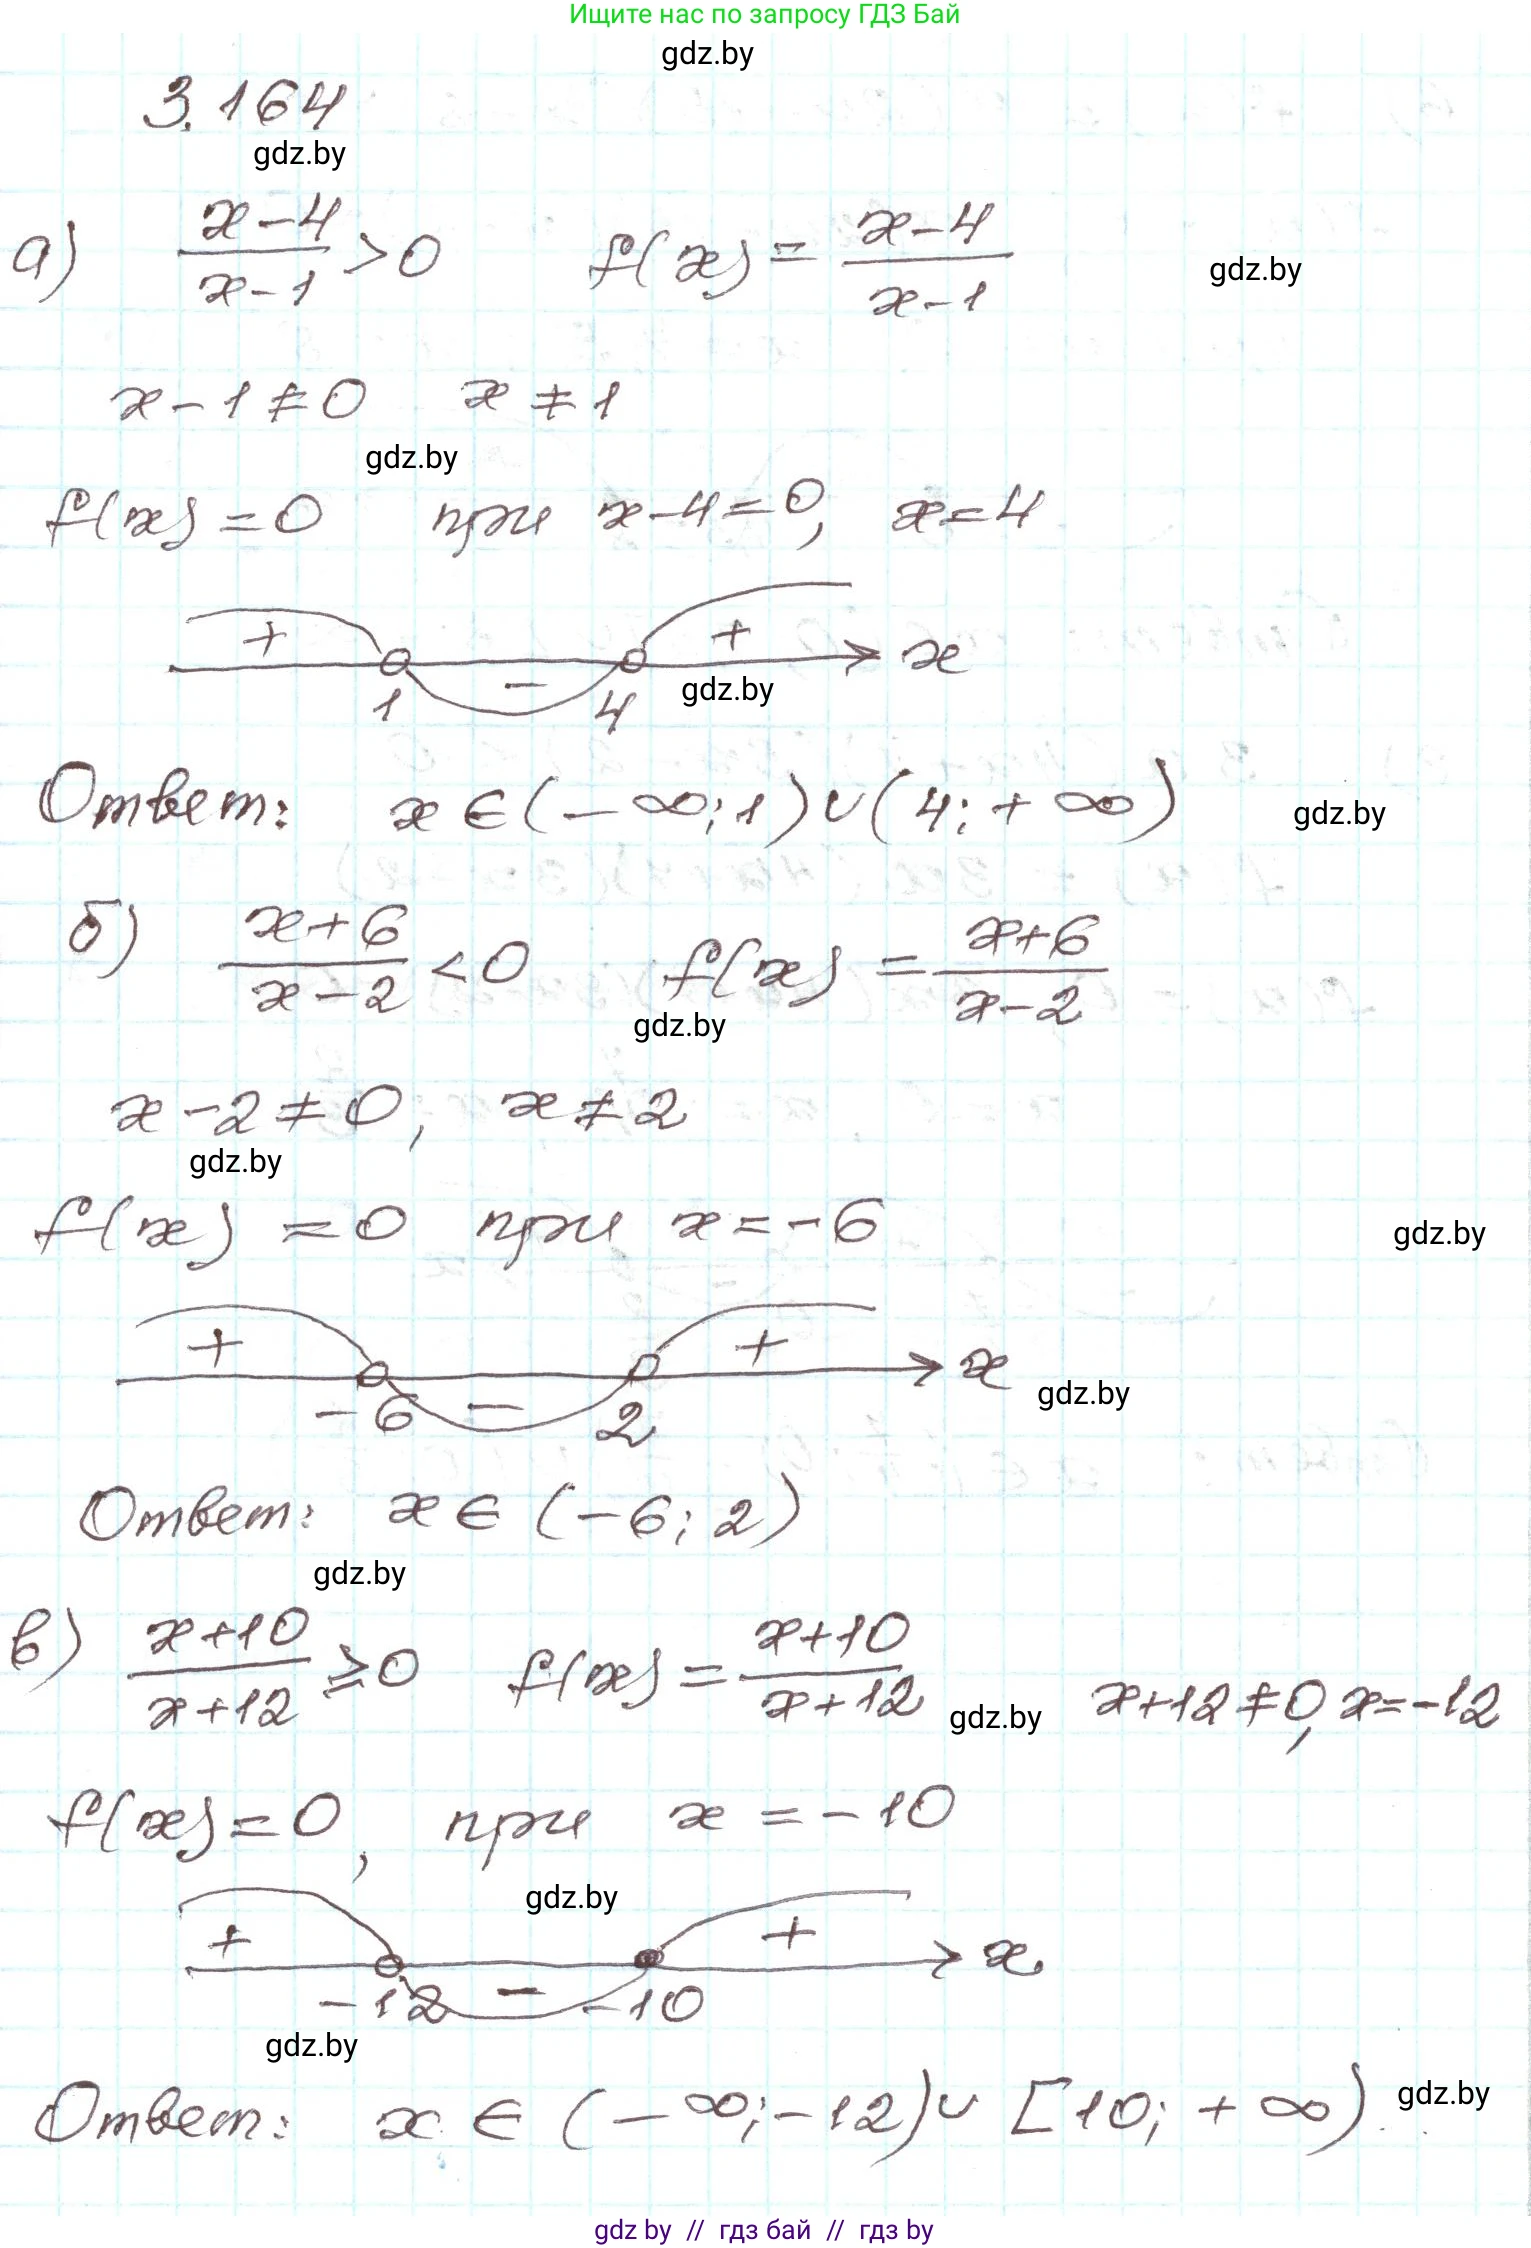 Ищите нас по запросу ГДЗ Бай
gdz.by
3.164
gdz.by
а) (x-4)/(x-1) > 0 f(x) = (x-4)/(x-1)
gdz.by
x-1≠0 x≠1
gdz.by
f(x)=0 при x-4=0, x=4
+ - + x
1 4 gdz.by
Ответ: x∈(-∞;1)∪(4;+∞)
gdz.by
б) (x+6)/(x-2) < 0 f(x) = (x+6)/(x-2)
gdz.by
x-2≠0, x≠2
gdz.by
f(x) = 0 при x=-6
gdz.by
+ - + x
-6 2 gdz.by
Ответ: x∈(-6;2)
gdz.by
в) (x+10)/(x+12) ≥ 0 f(x) = (x+10)/(x+12) gdz.by x+12≠0, x=-12
f(x)=0, при x=-10
gdz.by
+ - + x
-12 -10
gdz.by
Ответ: x∈(-∞;-12)∪[10;+∞).
gdz.by
gdz by // гдз бай // гдз by